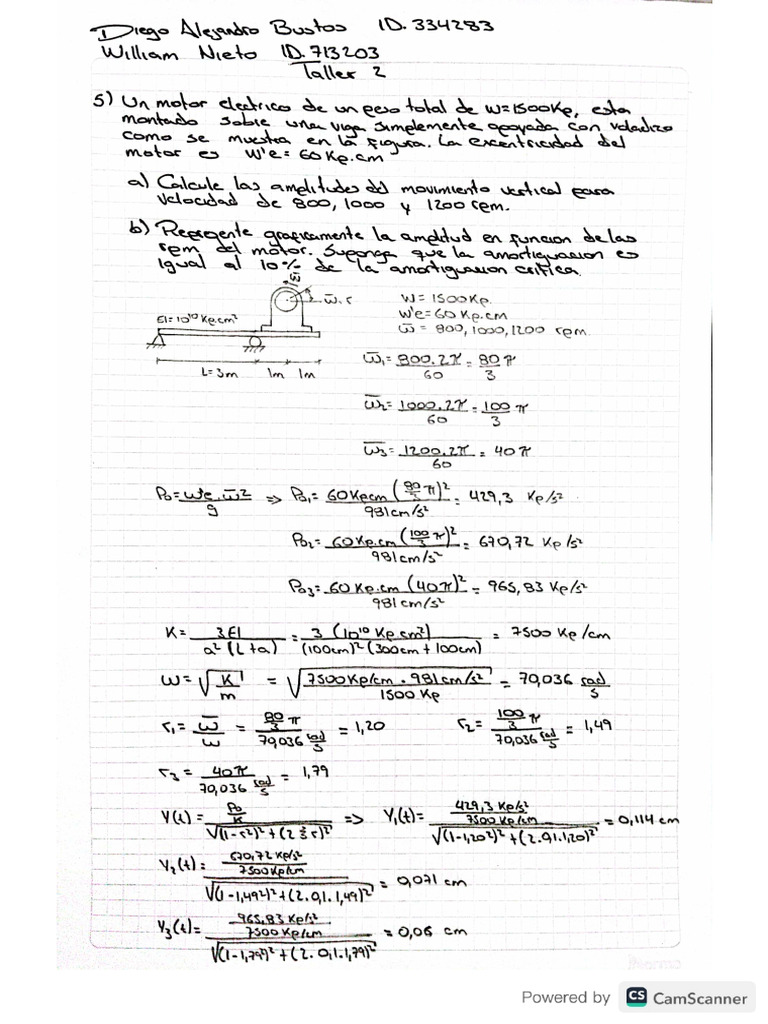 Diego Alejandro Bustos ID. 334283
William Nieto ID. 713203
Taller 2
5) Un motor electrico de un peso total de W=1500Kp, esta
montado sobre una viga simplemente apoyada con voladizo
como se muestra en la figura. La excentricidad del
motor es W'e = 60 Kp.cm
a) Calcule las amplitudes del movimiento vertical para
velocidad de 800, 1000 y 1200 rpm.
b) Represente graficamente la amplitud en funcion de las
rpm del motor. Suponga que la amortiguacion es
igual al 10% de la amortiguacion critica.
ω̅
ω̅.t
EI=10¹⁰ Kp.cm²
L=3m 1m 1m
W= 1500Kp.
W'e= 60 Kp.cm
ω̅ = 800, 1000, 1200 rpm.
ω̅₁= 800.2π/60 = 80/3 π
ω̅₂= 1000.2π/60 = 100/3 π
ω̅₃= 1200.2π/60 = 40π
Po = w'e.ω̅²/g => Po₁ = 60Kpcm (80/3 π)²/981cm/s² = 429,3 Kp/s²
Po₂ = 60Kp.cm (100/3 π)²/981cm/s² = 670,72 Kp/s²
Po₃ = 60 Kp.cm (40π)²/981 cm/s² = 965,83 Kp/s²
K = 3EI/a²(L+a) = 3 (10¹⁰ Kp cm²)/(100cm)² (300cm + 100cm) = 7500 Kp/cm
ω = √K/m = √7500Kp/cm . 981cm/s²/1500 Kp = 70,036 rad/s
r₁ = ω̅/ω = 80/3 π/70,036 rad/s = 1,20 r₂ = 100/3 π/70,036 rad/s = 1,49
r₃ = 40π/70,036 rad/s = 1,79
Y(t) = Po/K/√(1-r²)² + (2 ξ r)² => Y₁(t) = 429,3 Kp/s²/7500 Kp/cm/√(1-1,20²)² + (2.0,1.1,20)² = 0,114 cm
Y₂(t) = 670,72 Kp/s²/7500Kp/cm/√(1-1,49²)² + (2.0,1.1,49)² = 0,071 cm
Y₃(t) = 965,83 Kp/s²/7500 Kp/cm/√(1-1,79²)² + (2.0,1.1,79)² = 0,06 cm
Powered by CS CamScanner